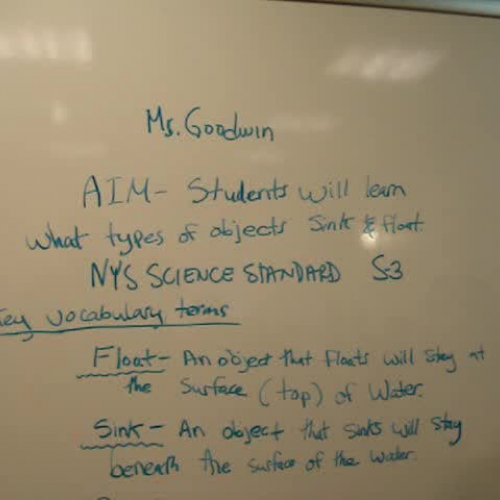 Ms. Goodwin
AIM- Students will learn
what types of objects Sink & float.
NYS SCIENCE STANDARD S-3
Key vocabulary terms
Float- An object that floats will stay at
the Surface (top) of Water.
Sink- An object that sinks will stay
beneath the surface of the water.